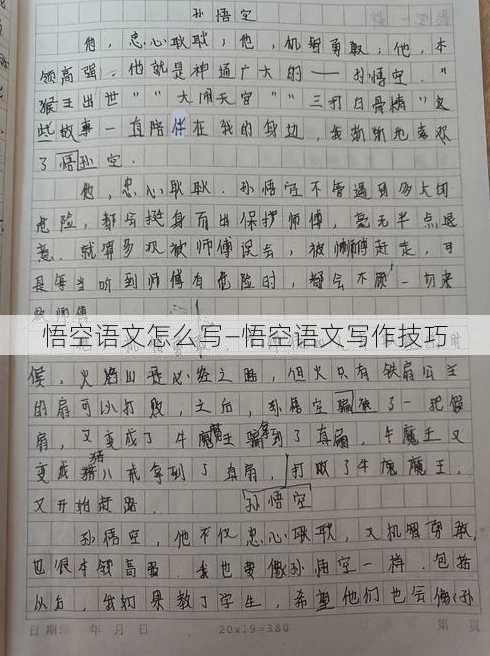 孙悟空
他，忠心耿耿；他，机智勇敢；他，本
领高强。他就是神通广大的——孙悟空。“
猴王出世”“大闹天宫”“三打白骨精”这
些故事一直陪伴在我的身边，我渐渐地喜欢
了悟孙空.
他，忠心耿耿.孙悟空不管遇到多大困
危险，都会挺身而出保护师傅，毫无半点退
意.就算多次被师傅误会，被师傅赶走，可
是每当听到师傅有危险的时，都会不顾一切来
救师傅
悟空语文怎么写—悟空语文写作技巧
候，火焰山是必经之路，但火只有铁扇公主
的扇可以打败，之后，孙悟空骗了一把假
扇，又变成了牛魔王骗到了真扇，牛魔王又
变成猪八戒拿到了真扇，打败了牛魔王，
又开始赶路. 孙悟空
孙悟空，他不仅忠心耿耿，又机智勇敢，
也很本领高强.我也要像孙悟空一样.包括
以后，我如果教了学生，希望他们也会像(孙
日期: 年 月 日 20×19=380 第 页